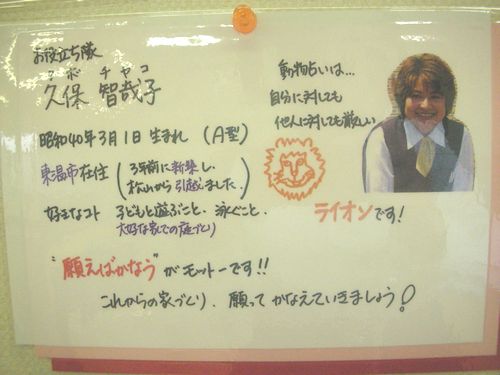 お役立ち隊
クボ チヤコ
久保 智哉子
昭和40年3月1日生まれ (A型)
東温市在住 (3年前に新築し、
松山から引越しました。)
好きなコト 子どもと遊ぶこと、泳ぐこと、
大好な家での庭づくり
動物占いは…
自分に対しても
他人に対しても厳しい
ライオンです!
"願えばかなう"がモットーです!!
これからの家づくり、願ってかなえていきましょう!